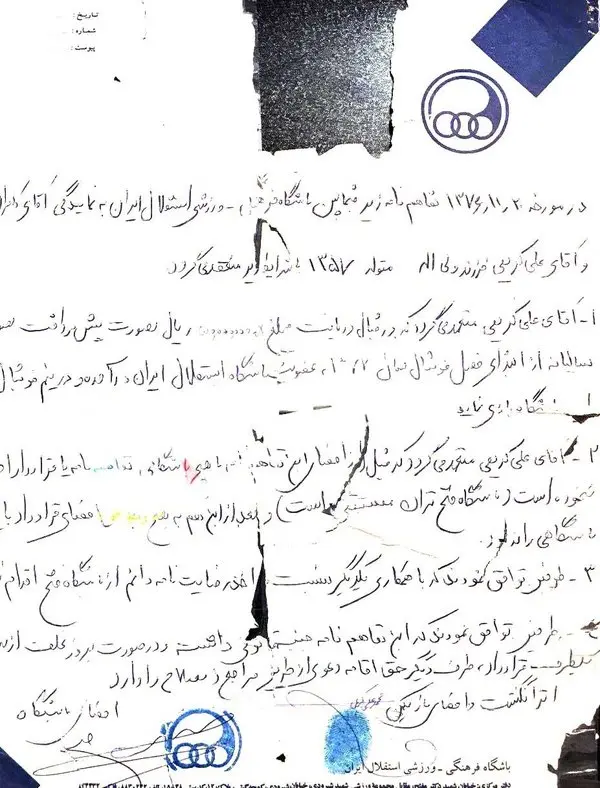 تاریخ :
شماره :
پیوست :
در مورخه ۲۰ ر ۱۱ ر ۱۳۷۶ تفاهم نامه زیر فیمابین باشگاه فرهنگی - ورزشی استقلال ایران به نمایندگی آقای
و آقای علی کریمی فرزند ولی اله متولد ۱۳۵۷ با شرایط زیر منعقد می گردد
۱- آقای علی کریمی متعهد می گردد که در قبال دریافت مبلغ ریال بصورت پیش پرداخت
سالیانه از ابتدای فصل فوتبال سال عضویت باشگاه استقلال ایران در آمده و در تیم فوتبال
باشگاه بازی نماید
۲- آقای علی کریمی متعهد می گردد که قبل از امضای این تفاهم نامه با هیچ باشگاهی تفاهم نامه یا قرارداد
ننموده است (باشگاه فتح تهران مستثنی است) و بعد از این هم به هیچ وجه حق امضای قرارداد با
باشگاهی را ندارد.
۳- طرفین توافق نمودند که با همکاری یکدیگر نسبت به اخذ رضایت نامه دائم از باشگاه فتح اقدام
۴- طرفین توافق نمودند که این تفاهم نامه داشته و در صورت بروز تخلف از
یکطرف قرارداد، طرف دیگر حق اقامه دعوی از طریق مراجع ذیصلاح را دارد
اثر انگشت و امضای بازیکن امضای باشگاه
باشگاه فرهنگی - ورزشی استقلال ایران